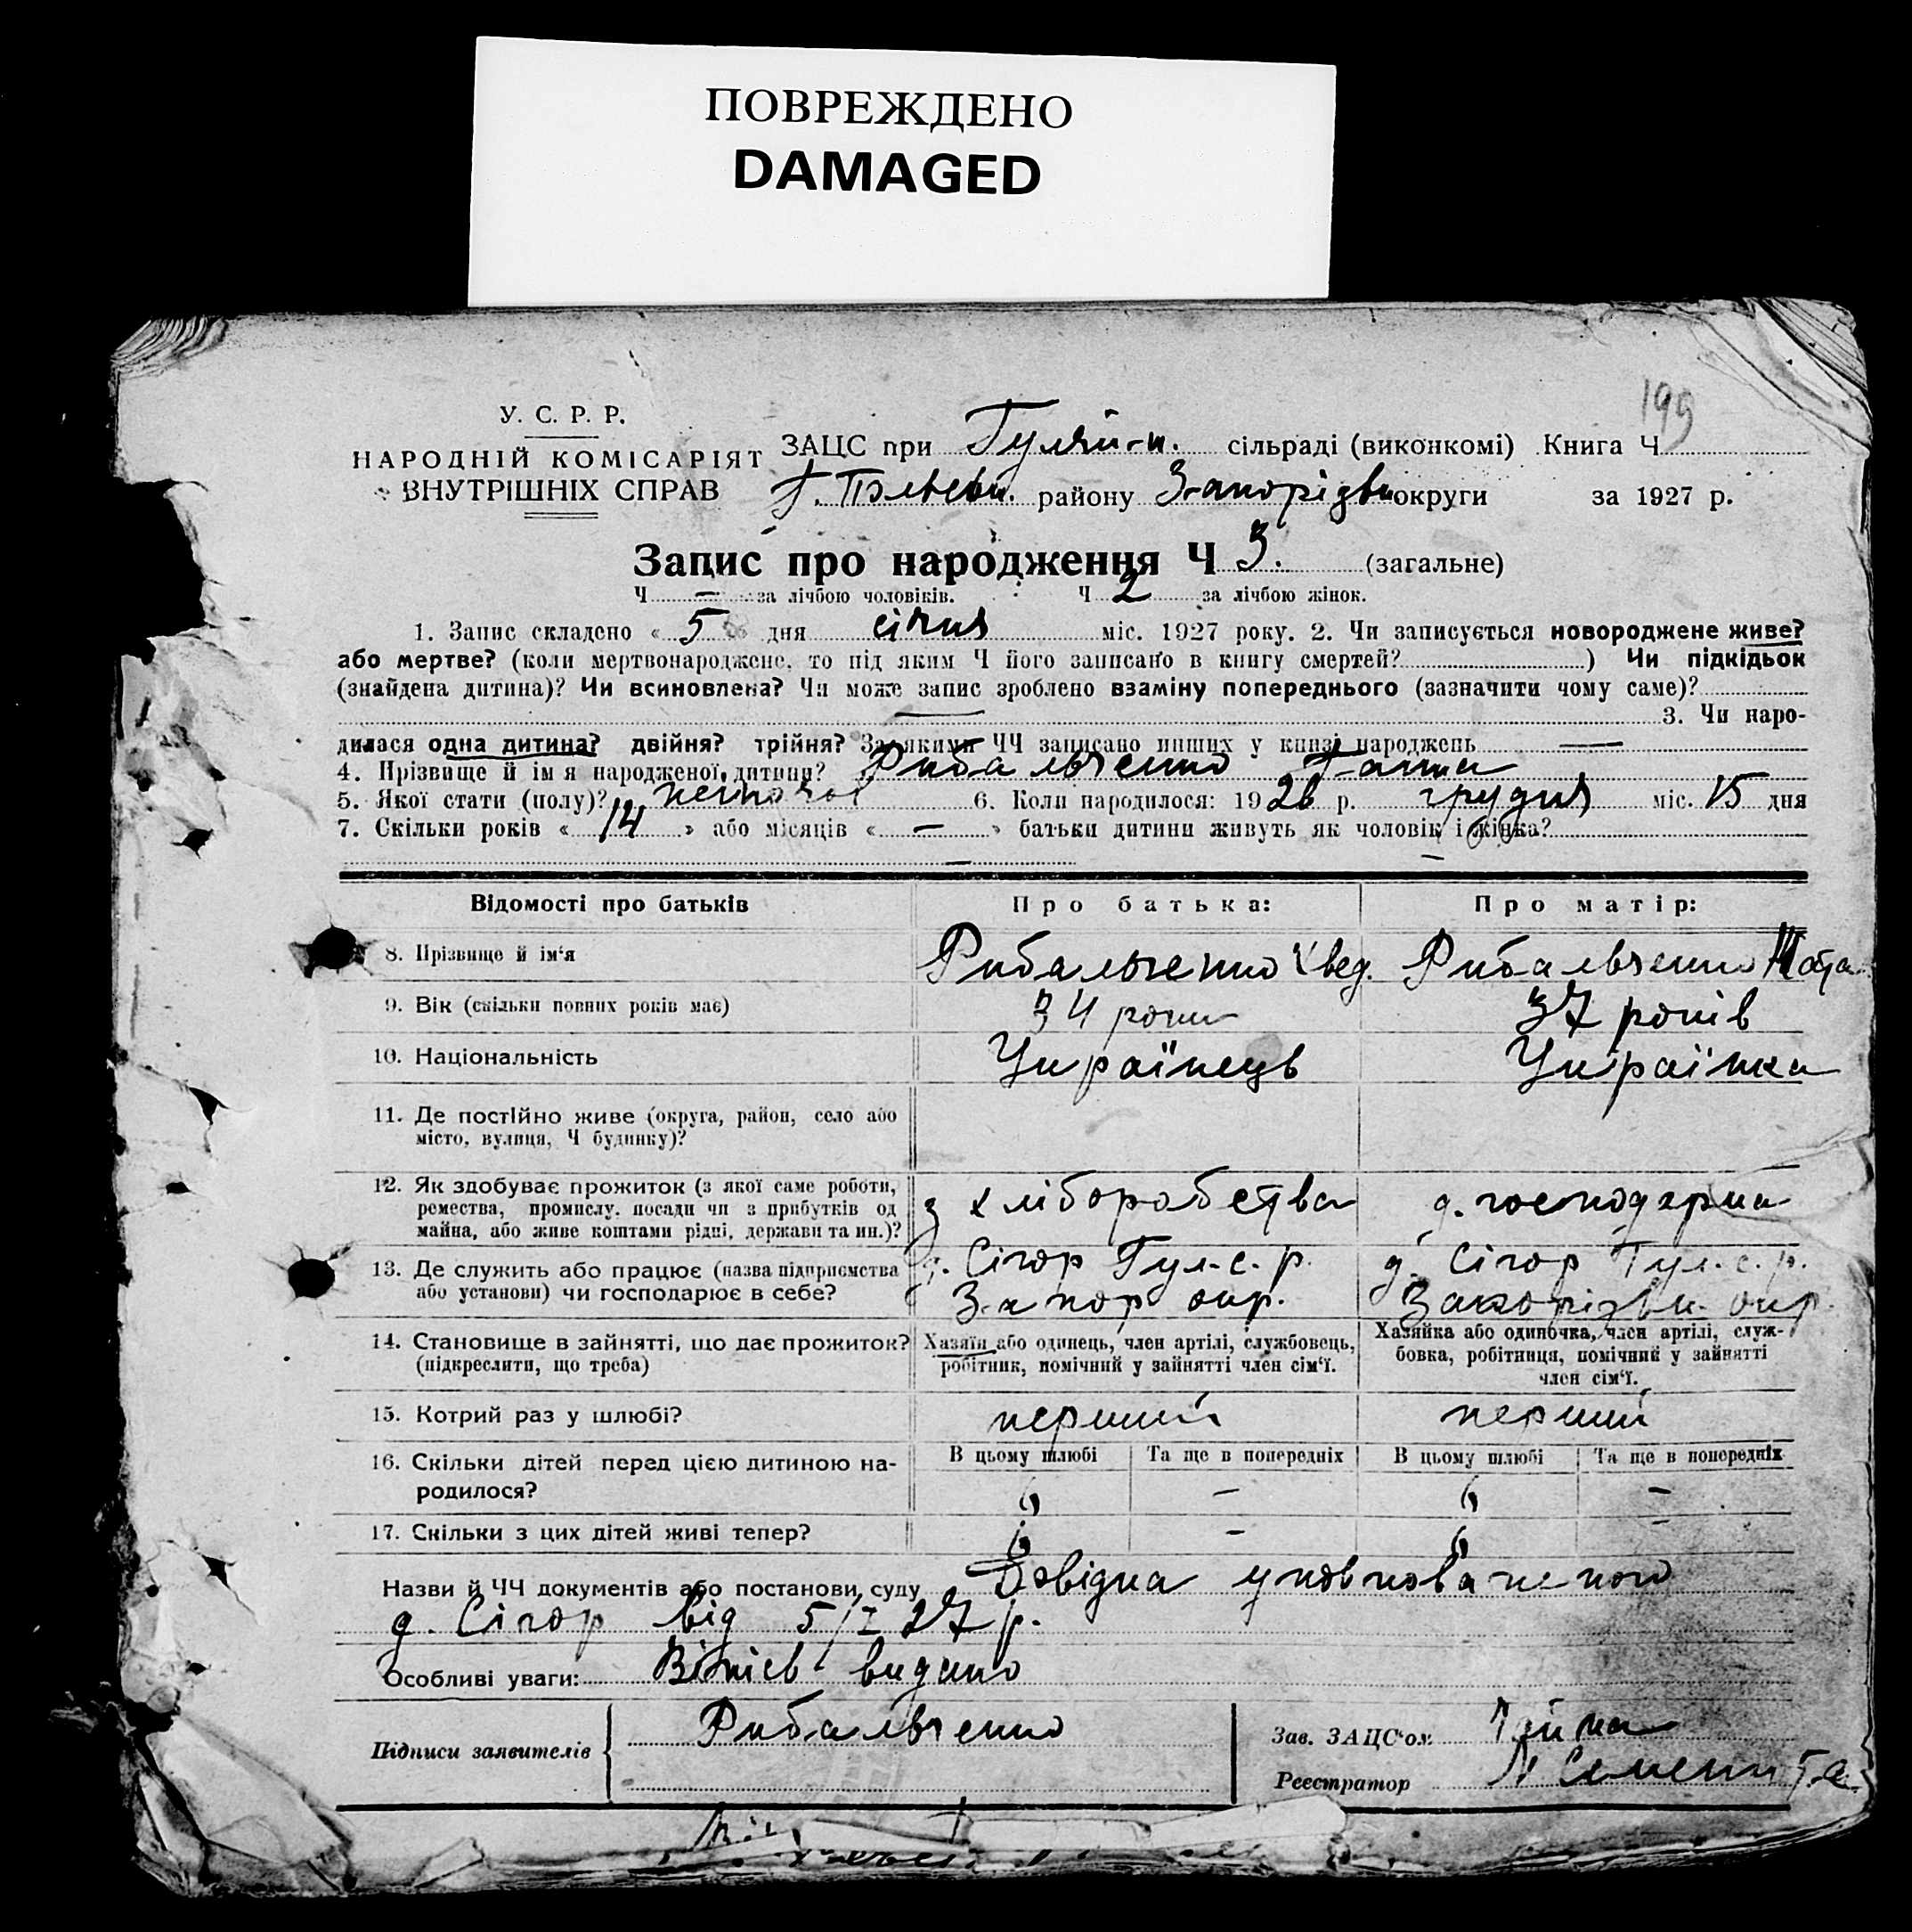 ПОВРЕЖДЕНО
DAMAGED
199
У. С. Р. Р.
НАРОДНІЙ КОМІСАРІЯТ
ВНУТРІШНІХ СПРАВ
ЗАЦС при Гуляй-п. сільраді (виконкомі) Книга Ч
Г. Польськ. району Запорізьк. округи за 1927 р.
Запис про народження Ч 3. (загальне)
Ч — за лічбою чоловіків. Ч 2 за лічбою жінок.
1. Запис складено « 5 » дня січня міс. 1927 року. 2. Чи записується новороджене живе?
або мертве? (коли мертвонароджене, то під яким Ч його записано в книгу смертей? ) Чи підкідьок
(знайдена дитина)? Чи всиновлена? Чи може запис зроблено взаміну попереднього (зазначити чому саме)?
— 3. Чи наро-
дилася одна дитина? двійня? трійня? За якими ЧЧ записано инших у книзі народжень —
4. Прізвище й ім'я народженої дитини? Рибальченко Ганна
5. Якої стати (полу)? жіночої 6. Коли народилося: 1926 р. грудня міс. 15 дня
7. Скільки років « 14 » або місяців « — » батьки дитини живуть як чоловік і жінка?
— —
Відомості про батьків Про батька: Про матір:
8. Прізвище й ім'я Рибальченко Хвед. Рибальченко
9. Вік (скільки повних років має) 34 роки 37 років
10. Національність Українець Українка
11. Де постійно живе (округа, район, село або
місто, вулиця, Ч будинку)?
12. Як здобуває прожиток (з якої саме роботи,
ремества, промислу, посади чи з прибутків од
майна, або живе коштами рідні, держави та ин.)?
з хліборобства д. господарка
13. Де служить або працює (назва підприємства
або установи) чи господарює в себе?
д. Січор Гул. с. р. д. Січор Гул. с. р.
Запор окр. Запорізьк. окр.
14. Становище в зайнятті, що дає прожиток?
(підкреслити, що треба)
Хазяїн або одинець, член артілі, службовець,
робітник, помічний у зайнятті член сім'ї.
Хазяйка або одиночка, член артілі, служ-
бовка, робітниця, помічний у зайнятті
член сім'ї.
15. Котрий раз у шлюбі? перший перший
16. Скільки дітей перед цією дитиною на-
родилося?
В цьому шлюбі Та ще в попередніх В цьому шлюбі Та ще в попередніх
6 — 6 —
17. Скільки з цих дітей живі тепер? 6 — 6 —
Назви й ЧЧ документів або постанови суду Довідка уповноваженого
д. Січор від 5/I 27 р.
Особливі уваги: Витяг видано
Підписи заявителів Рибальченко
Зав. ЗАЦС'ом
Реестратор